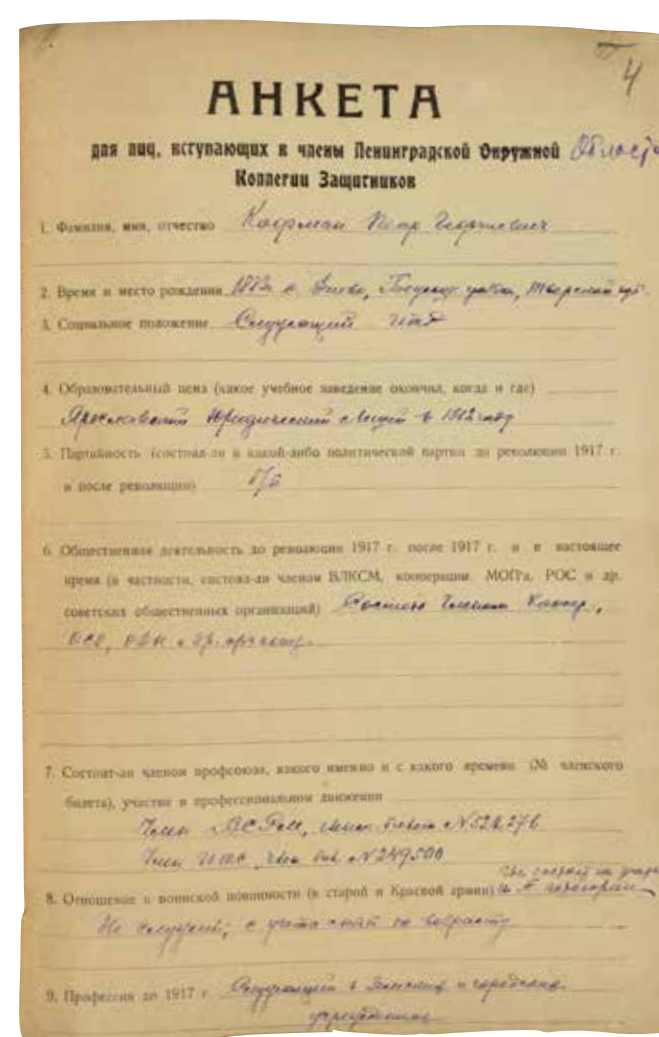 4
АНКЕТА
для лиц, вступающих в члены Ленинградской Окружной Области
Коллегии Защитников
1. Фамилия, имя, отчество Кауфман Петр Георгиевич
2. Время и место рождения
3. Социальное положение. Служащий ИТР
4. Образовательный ценз (какое учебное заведение окончил, когда и где)
Ярославский Юридический Лицей в 1912 году
5. Партийность (состоял-ли в какой-либо политической партии до революции 1917 г.
и после революции) б/п
6. Общественная деятельность до революции 1917 г. после 1917 г. и в настоящее
время (в частности, состоял-ли членом ВЛКСМ, кооперации МОПРа, РОС и др.
советских общественных организаций) Состою членом Коопер.,
и др. организ.
7. Состоит-ли членом профсоюза, какого именно и с какого времени (№ членского
билета), участие в профессиональном движении
Член член. билета №
Член ИТС, член. бил. № 249500
8. Отношение к воинской повинности (в старой и Красной армии)
Не служил; с учета снят по возрасту
9. Профессия до 1917 г. Служащий в Земских и городских
учреждениях